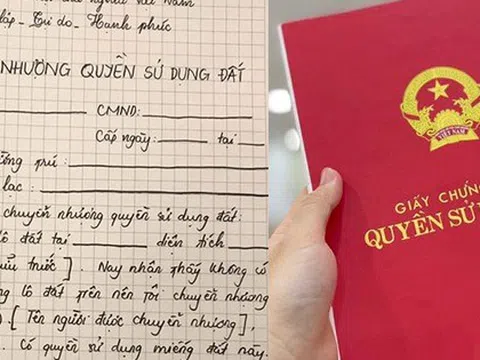 của người Việt Nam
lập - Tự do - Hạnh phúc
NHƯỢNG QUYỀN SỬ DỤNG ĐẤT
CMND:
Cấp ngày: tại
ờng trú:
lạc:
chuyển nhượng quyền sử dụng đất:
lô đất tại diện tích
ữu trước]. Nay nhận thấy không có
ng lô đất trên nên tôi chuyển nhượng
) [Tên người được chuyển nhượng],
. Có quyền sử dụng miếng đất này.
VIỆT NAM
GIẤY CHỨNG
QUYỀN SỬ